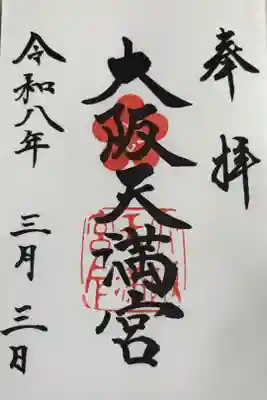 奉拝
大阪天満宮
令和八年 三月三日